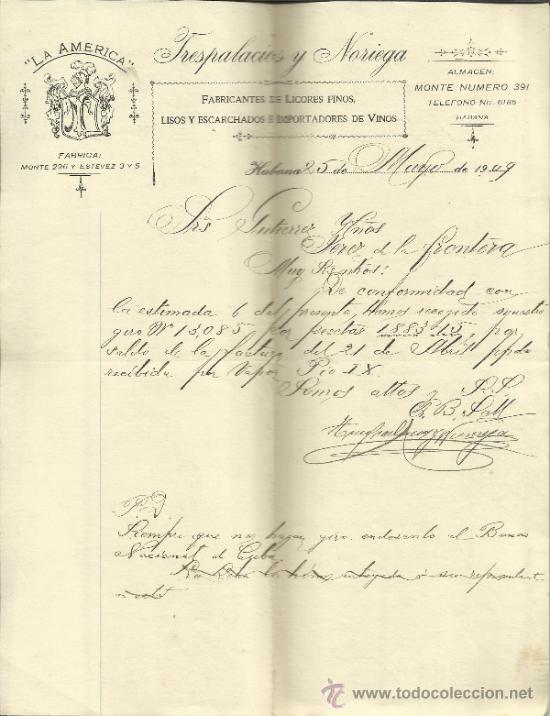 "LA AMERICA"
Trespalacios y Noriega
FABRICANTES DE LICORES FINOS,
LISOS Y ESCARCHADOS E IMPORTADORES DE VINOS
ALMACEN:
MONTE NUMERO 391
TELEFONO No. 6185
HABANA
FABRICA:
MONTE 296 Y ESTEVEZ 3 Y 5
Habana 25 de Mayo de 1909
Srs Gutierrez Hños
Jerez de la frontera
Muy Sres ños:
De conformidad con
la estimada 6 del presente, hemos recogido su
giro Nº 13.085 por pesetas 1883.15 por
saldo de la factura del 21 de Abril ppdo
recibida por Vapor Pio IX.
Somos attos y S.S.
Q. B. S. M
Trespalacios y Noriega
P.D
Siempre que nos hagan giro, endosenlo al Banco
Nacional de Cuba.
www.todocoleccion.net